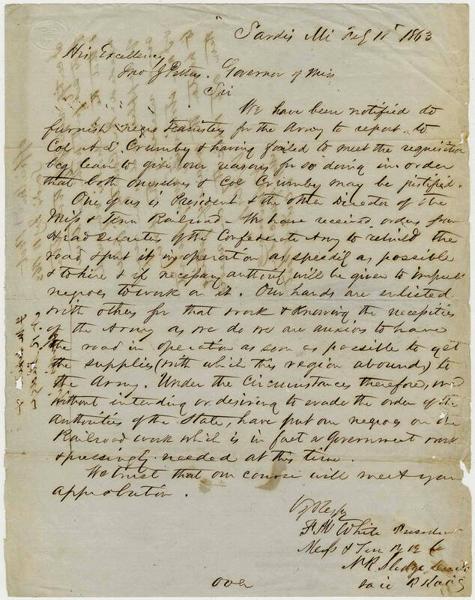 Sardis Mi Feby 11th 1863
His Excellency
Jno J Pettus. Governor of Miss
Sir
We have been notified to
furnish negro teamsters for the Army to report to
Col Crumby & having failed to meet the requisition
beg leave to give our reasons for so doing in order
that both ourselves & Col Crumby may be justified.
One of us is President & the other Director of the
Miss & Tenn Railroad - We have received orders from
Head Quarters of the Confederate Army to rebuild the
road & put it in operation as speedily as possible
& to hire & if necessary authority will be given to impress
negroes to work on it. Our hands are enlisted
with others for that work & knowing the necessities
of the Army as we do we are anxious to have
the road in operation as soon as possible to get
the supplies (with which this region abounds) to
the Army. Under the circumstances therefore, we
without intending or desiring to evade the order of the
authorities of the State, have put our negroes on the
Railroad work which is in fact a Government work
& pressingly needed at this time.
We trust that our course will meet your
approbation.
F M White President
Miss & Ten R R
N R Sledge
over